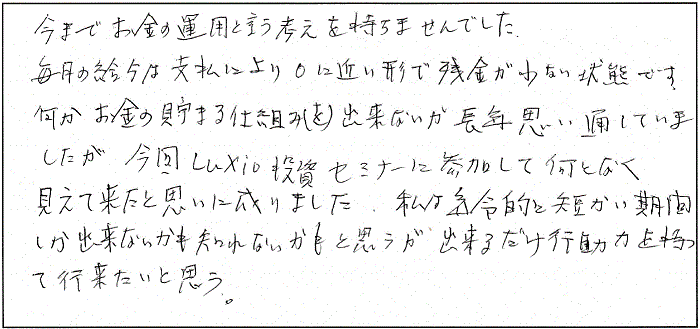 今までお金の運用と言う考えを持ちませんでした.
毎月の給与は支払により0に近い形で残金が少ない状態です.
何かお金の貯まる仕組み(を)出来ないか長年思い通していま
したが 今回Luxio投資セミナーに参加して何となく
見えて来たと思いに成りました. 私は年令的に短かい期間
しか出来ないかも知れないかもと思うが 出来るだけ行動力を持っ
て行来たいと思う。